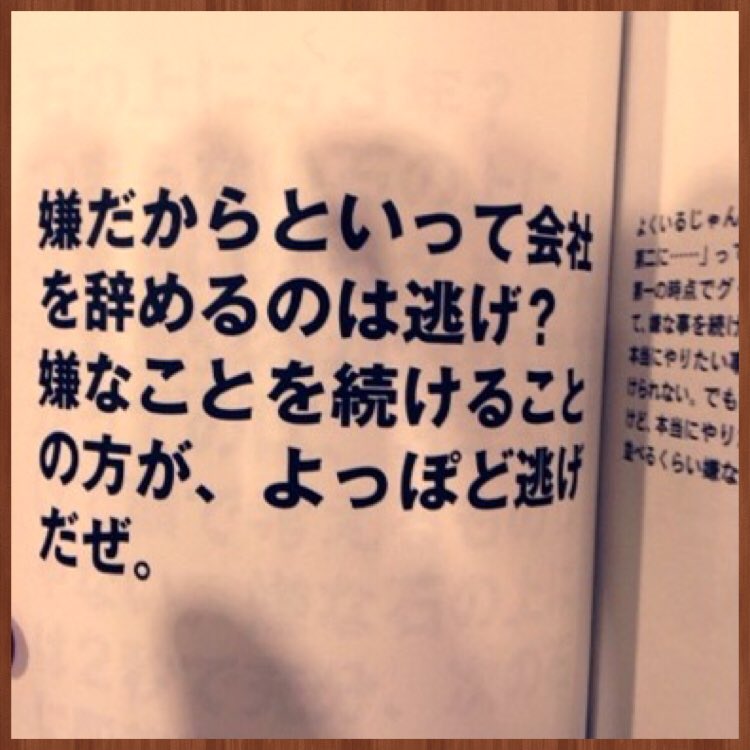 嫌だからといって会社
を辞めるのは逃げ?
嫌なことを続けること
の方が、よっぽど逃げ
だぜ。
よくいるじゃん
第二に……」って
第一の時点でグ
て、嫌な事を続け
本当にやりたい事
けられない。でも
けど、本当にやり
並べるくらい嫌な